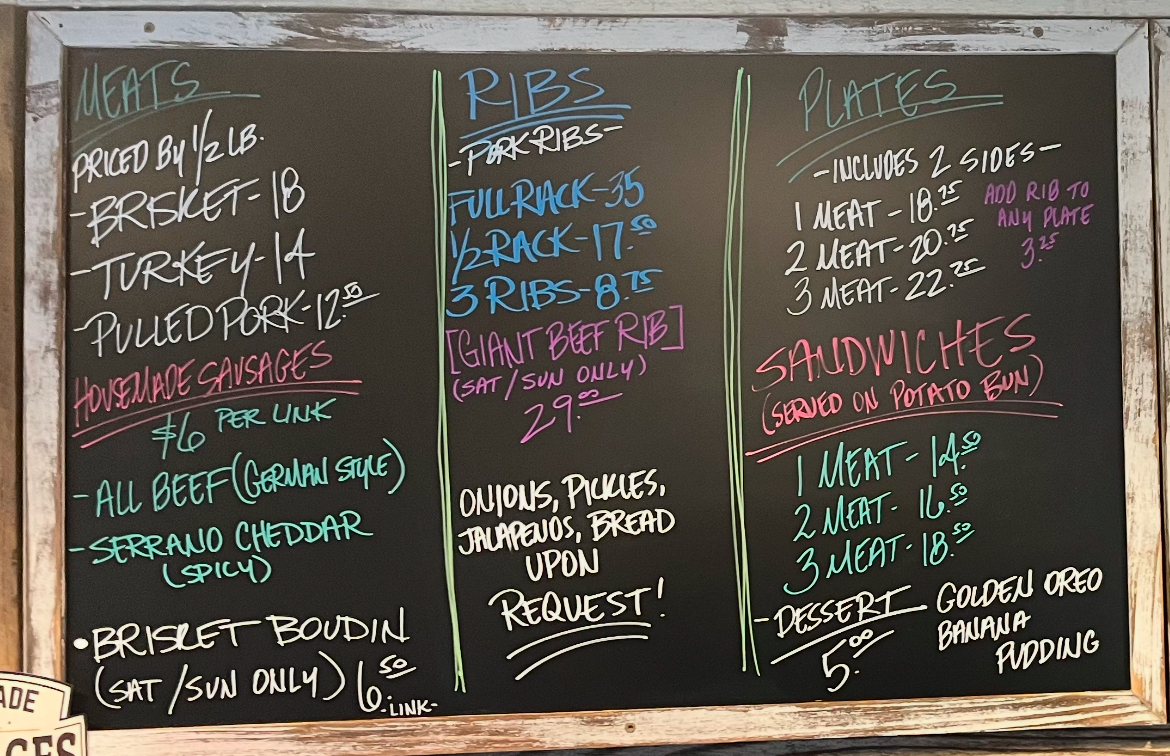 MEATS
PRICED BY 1/2 LB.
-BRISKET-18
-TURKEY-14
-PULLED PORK-12.50
HOUSEMADE SAUSAGES
$6 PER LINK
-ALL BEEF (GERMAN STYLE)
-SERRANO CHEDDAR
(SPICY)
•BRISKET BOUDIN
(SAT/SUN ONLY) 6.50
-LINK-
RIBS
-PORK RIBS-
FULL RACK-35
1/2 RACK-17.50
3 RIBS-8.75
[GIANT BEEF RIB]
(SAT/SUN ONLY)
29.00
ONIONS, PICKLES,
JALAPENOS, BREAD
UPON
REQUEST!
PLATES
-INCLUDES 2 SIDES-
1 MEAT-18.75
2 MEAT-20.75
3 MEAT-22.75
ADD RIB TO
ANY PLATE
3.25
SANDWICHES
(SERVED ON POTATO BUN)
1 MEAT-14.50
2 MEAT-16.50
3 MEAT-18.50
-DESSERT
5.00
GOLDEN OREO
BANANA
PUDDING
ADE
GES